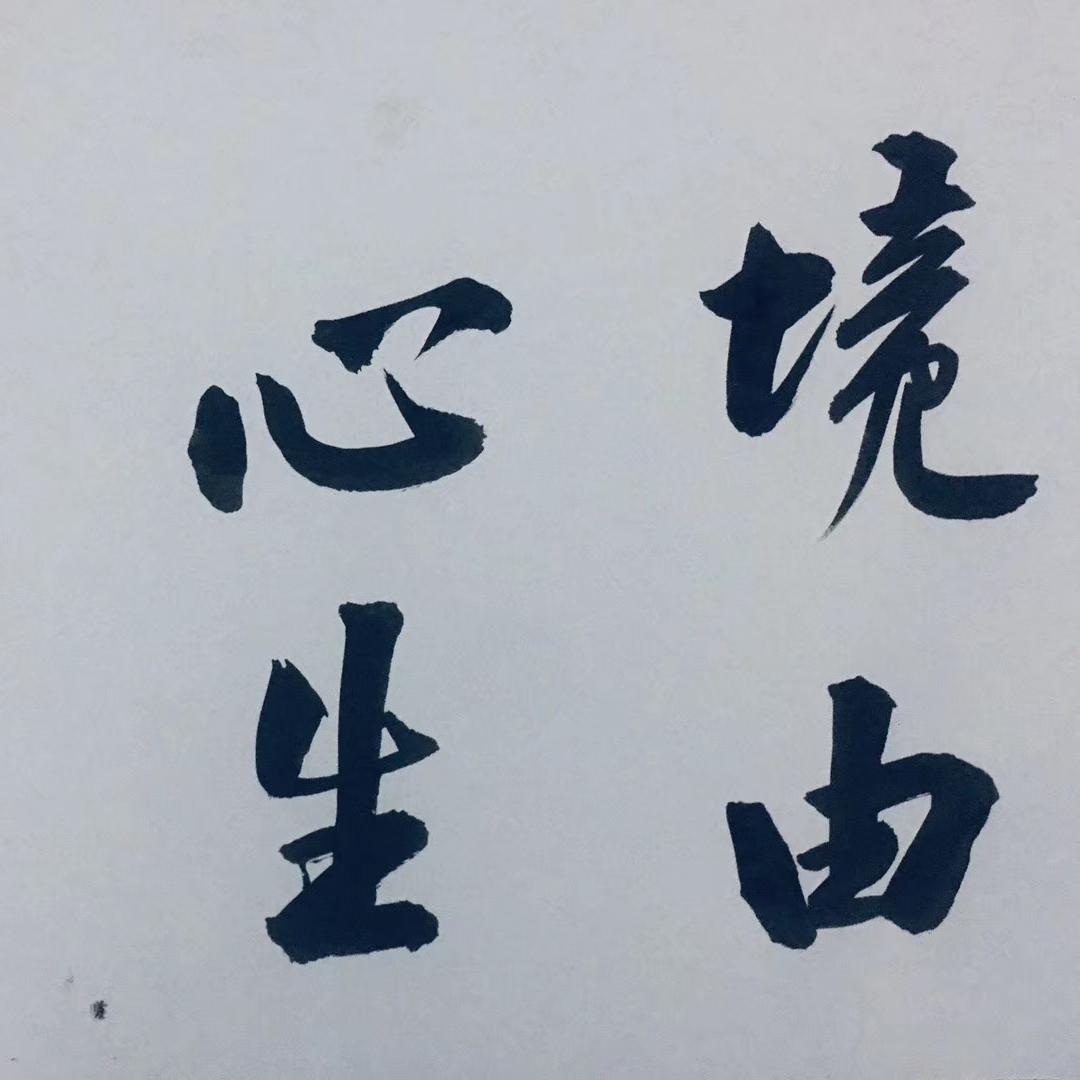 境由
心生